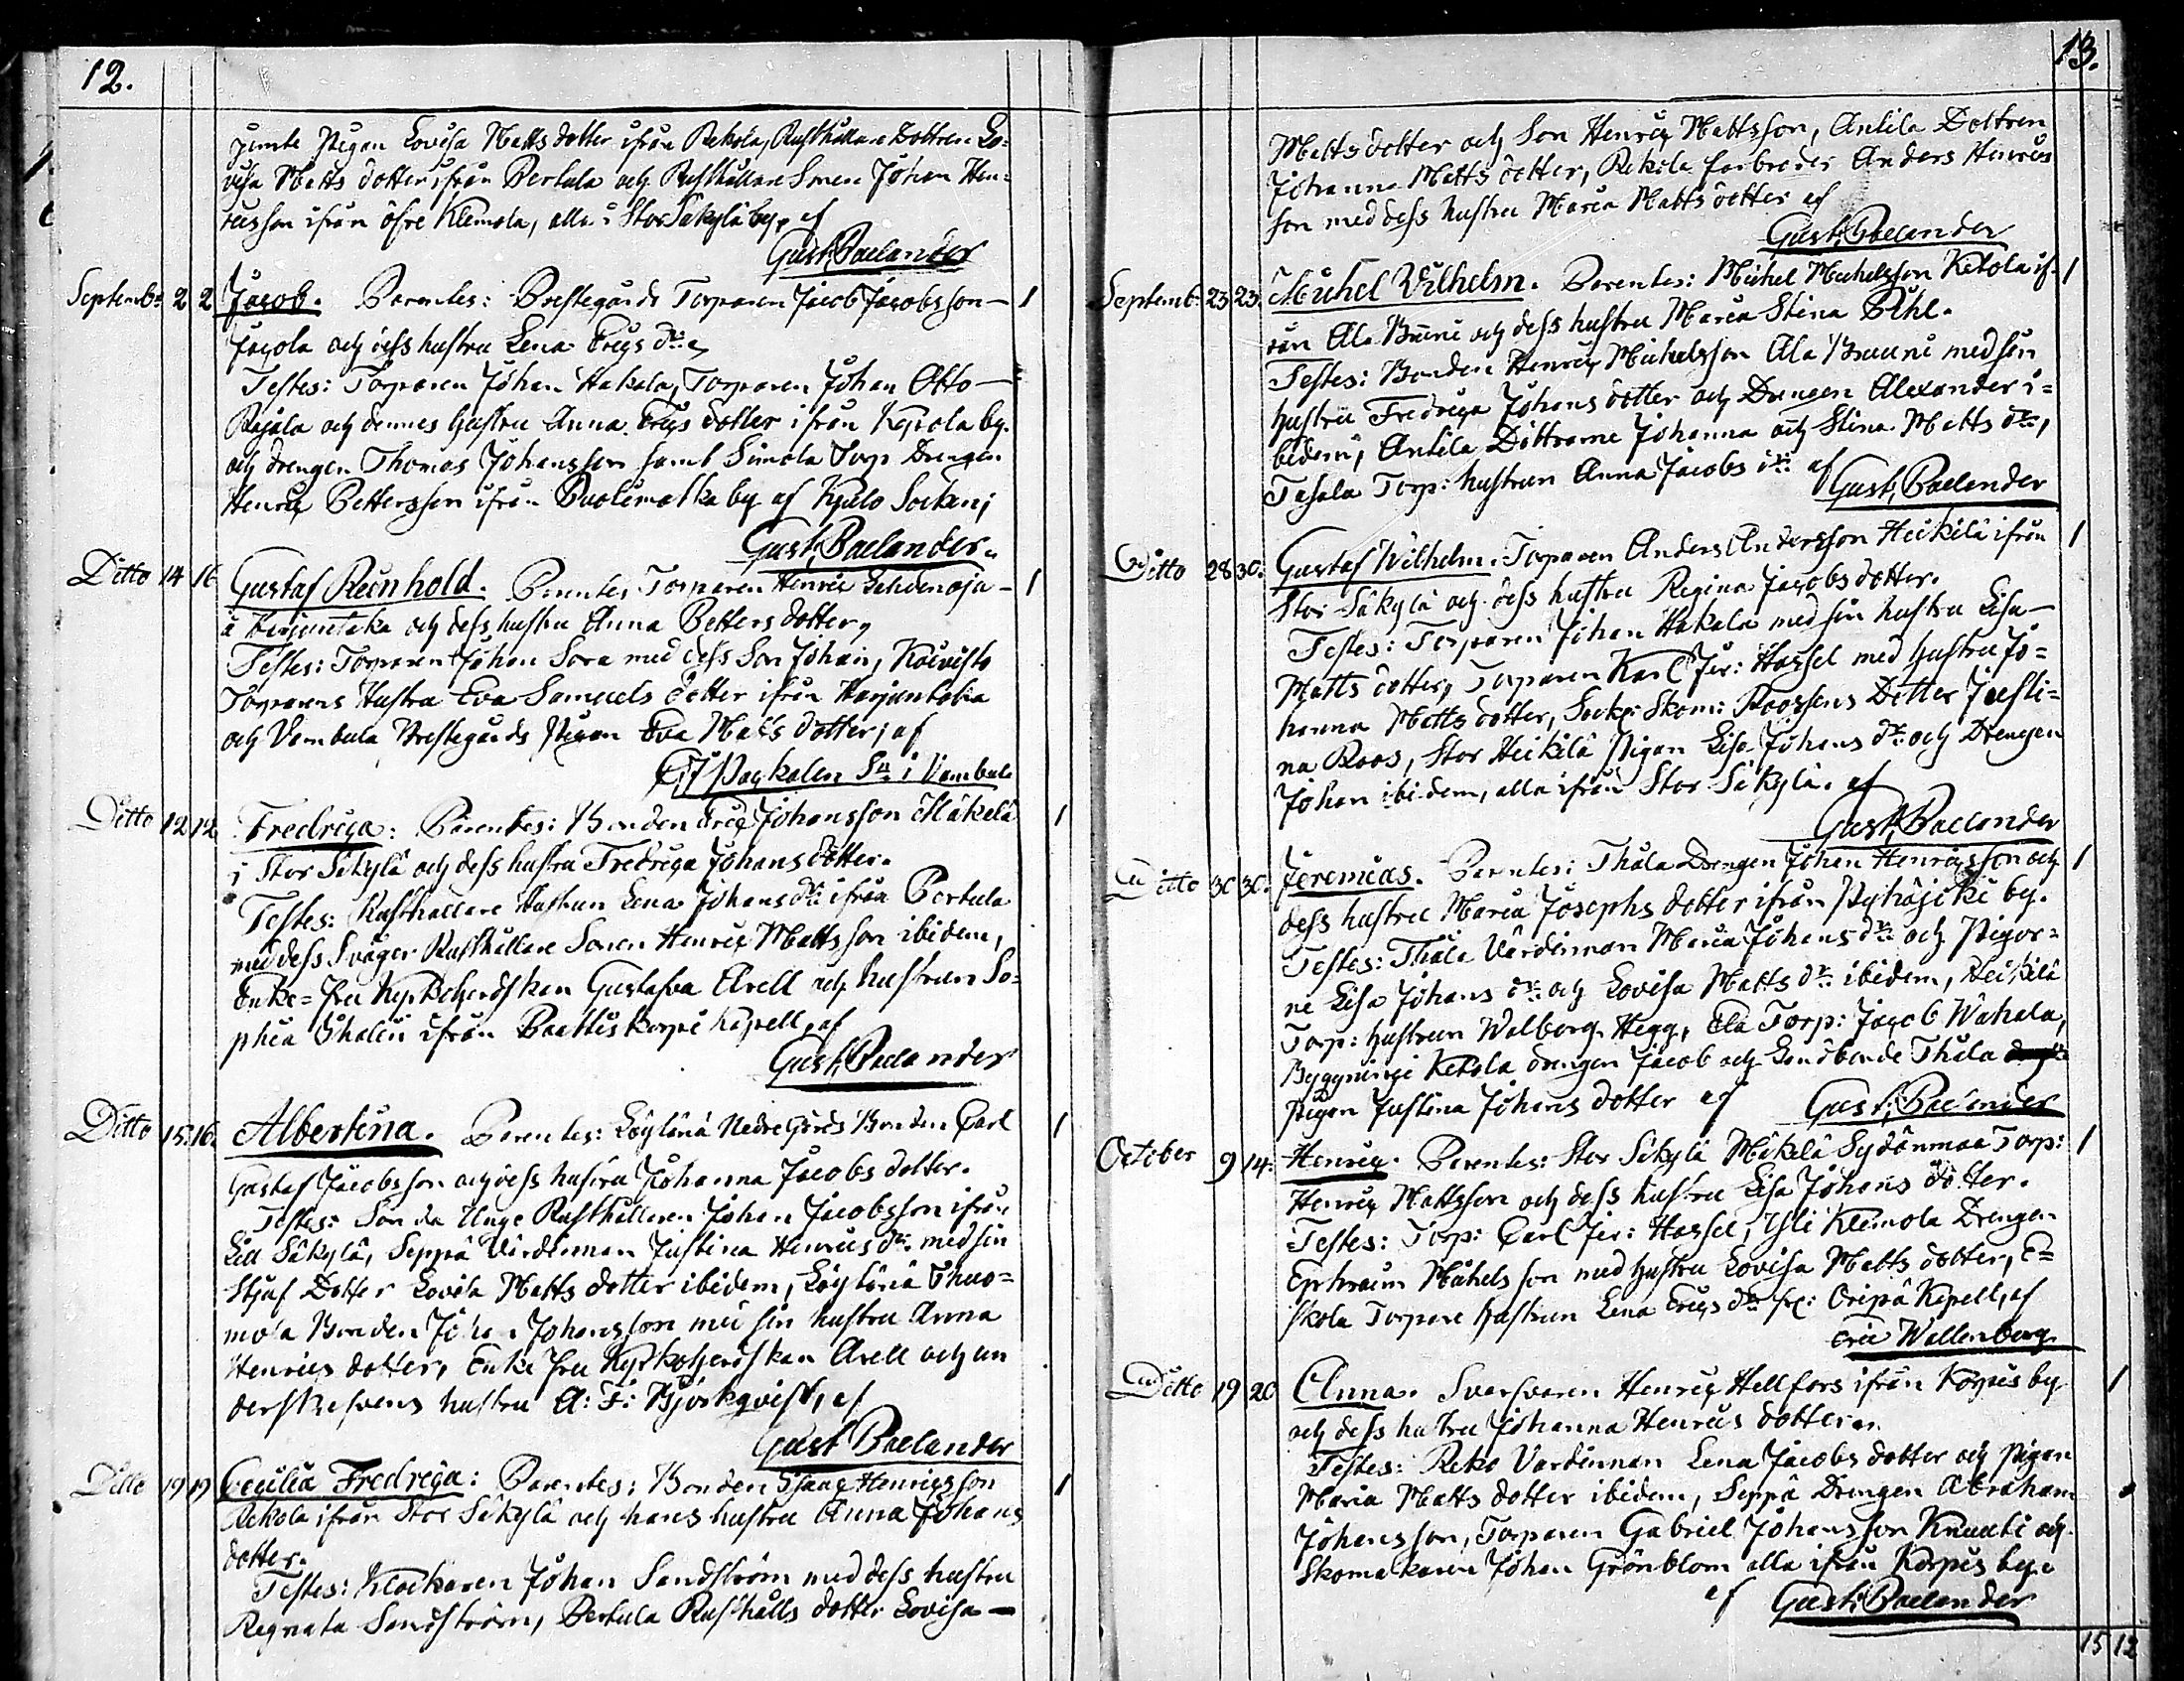 12.
jemte Pigan Lovisa Mattsdotter ifrån Rekola, Rusthållare Dottren Lo=
visa Matts dotter ifrån Pertula och Rusthållare Sonen Johan Hen=
ricsson ifrån öfre Klemola, alla i Stor Säkylä by, af
Gust. Paelander
Septembr 2 2 Jacob. Parentes: Prestegårds Torparen Jacob Jacobsson — 1
och dess hustru Lena Erics dr.
Testes: Torparen Johan Hakala, Torparen Johan Otto —
Rajala och dennes hustru Anna Erics dotter ifrån by
och drengen Thomas Johansson samt Simola Torp Drengen
Henric Pettersson ifrån by af Kjulo Socken;
Gust. Paelander.
Ditto 14 16 Gustaf Reinhold. Parentes Torparen Henric — 1
och dess hustru Anna Petters dotter,
Testes: Torparen Johan Sora med dess Son Johan, Koivisto
Torparens Hustru Eva Samuels dotter ifrån
och Vambula Prestegårds Pigan Eva Matts dotter; af
i Vambula
Ditto 12 12 Fredrica: Parentes: Bonden Eric Johansson Mäkelä 1
i Stor Säkylä och dess hustru Fredrica Johans dotter.
Testes: Rusthållare Hustrun Lena Johans dr ifrån Pertula
med dess Svåger Rusthållare Sonen Henric Mattsson ibidem,
Enke=fru Kyrkoherdskan Gustafva Arell och hustrun So=
phia Thalin ifrån Kapell, af
Gust. Paelander
Ditto 15. 16. Albertina. Parentes: Löytänä Nedregårds Bonden Carl 1
Gustaf Jacobsson och dess hustru Johanna Jacobs dotter.
Testes: Rusthållaren Johan Jacobsson ifrån
Lill Säkylä, Seppä Värdinnan Justina Henrics dr. med sin
Stjuf Dotter Lovisa Matts dotter ibidem, Löytänä
Bonden Johan Johansson med sin hustru Anna
Henrics dotter, Enke fru Kyrkoherdskan Arell och
hustru A: F: Björkqvist, af
Gust Paelander
Ditto 19 19 Cecilia Fredrica: Parentes: Bonden Isaac Henricsson 1
Rekola ifrån Stor Säkylä och hans hustru Anna Johans
dotter.
Testes: Klockaren Johan Sandström med dess hustru
Regnata Sandström, Pertula Rusthålls dotter Lovisa —
13.
Matts dotter och Son Henric Mattsson, Antila Dottren
Johanna Matts dotter, Rekola farbroder Anders Henrics
son med dess hustru Maria Matts dotter af
Gust. Paelander
Septemb. 23 23. Michel Vilhelm. Parentes: Michel Michelsson Ketola if= 1
rån Ala och dess hustru Maria Stina Pihl.
Testes: Bonden Henric Michelsson Ala med sin
hustru Fredrica Johans dotter och Drengen Alexander i=
bidem, Antila Döttrarne Johanna och Stina Matts dr,
Tasala Torp: hustrun Anna Jacobs dr: af
Gust. Paelander
Ditto 28 30. Gustaf Wilhelm. Torparen Anders Andersson Heikilä ifrån 1
Stor Säkylä och dess hustru Regina Jacobsdotter.
Testes: Torparen Johan Hakala med sin hustru Lisa —
Matts dotter, Torparen Karl Jer: Hassel med hustru Jo=
hanna Matts dotter, Sock: Skom: Roossens Dotter Justi=
na Roos, Stor Heikilä Pigan Lisa Johans dr: och Drengen
Johan ibidem, alla ifrån Stor Säkylä. af
Gust. Paelander
Ditto 30 30. Jeremias. Parentes: Thala Drengen Johan Henricsson och 1
dess hustru Maria Josephs dotter ifrån Pyhäjoki by.
Testes: Thala Värdinnan Maria Johans dr: och Pigor=
ne Lisa Johans dr: och Lovisa Matts dr: ibidem, Heikilä
Torp: hustrun Walborg Hegg, Ela Torp: Jacob Wahala,
Ketola drengen Jacob och Thala
Pigan Justina Johans dotter af Gust. Paelander
October 9 14. Henric. Parentes: Stor Säkylä Mäkelä Sydänmaa Torp: 1
Henric Mattsson och dess hustru Lisa Johans dotter.
Testes: Torp: Carl Jer: Hassel, Yli Klemola Drengen
Ephraim Michelsson med hustru Lovisa Matts dotter, E=
skola Torpare hustrun Lena Erics dr: Oripä Kapell, af
Eric Wallenberg
Ditto 19 20 Anna. Svarfvaren Henric Hellfors ifrån Korpis by 1
och dess hustru Johanna Henrics dotter.
Testes: Reko Värdinnan Lena Jacobs dotter och Pigan
Maria Matts dotter ibidem, Seppä Drengen Abraham
Johansson, Torparen Gabriel Johansson Knuuti och
Skomakaren Johan Grönblom alla ifrån Korpis by.
af Gust. Paelander
15 12